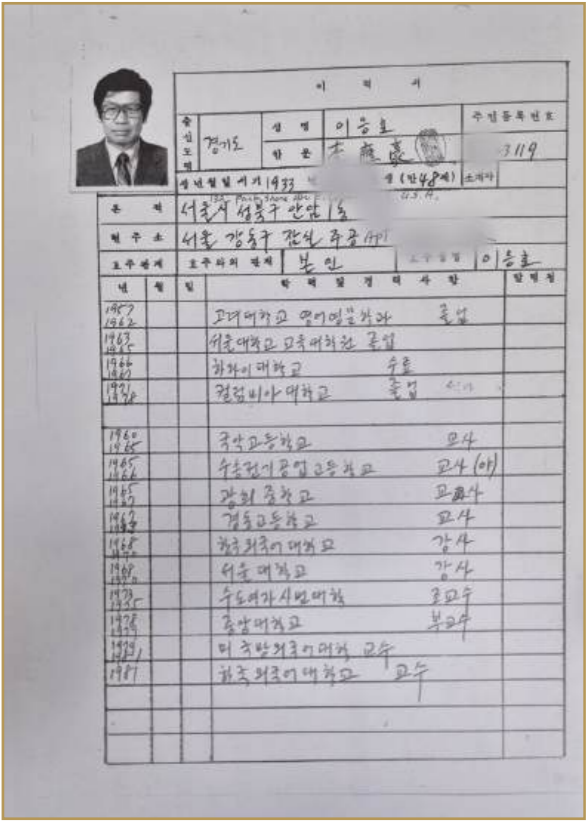 이 력 서
출신도명 경기도 성 명 이응호 주민등록번호
한 문 李應豪 3119
생년월일 서기 1933 년 생 (만 48세) 소개자
U.S.A.
본 적 서울시 성북구 안암 1동
현 주 소 서울 강동구 잠실 주공 Apt
호주관계 호주와의 관계 본인 호주성명 이응호
년 월 일 학 력 및 경 력 사 항 발령청
1957 1962 고려대학교 영어영문학과 졸업
1963 1965 서울대학교 교육대학원 졸업
1966 1967 하와이 대학교 수료
1971 1978 컬럼비아 대학교 졸업
1960 1965 국악고등학교 교사
1965 1966 수송전기공업고등학교 교사 (야)
1965 1967 광희 중학교 교사
1967 경동고등학교 교사
1968 한국외국어대학교 강사
1968 서울대학교 강사
1973 1975 수도여자사범대학 조교수
1978 1979 중앙대학교 부교수
1979 1981 미 국방외국어대학 교수
1981 한국외국어대학교 교수